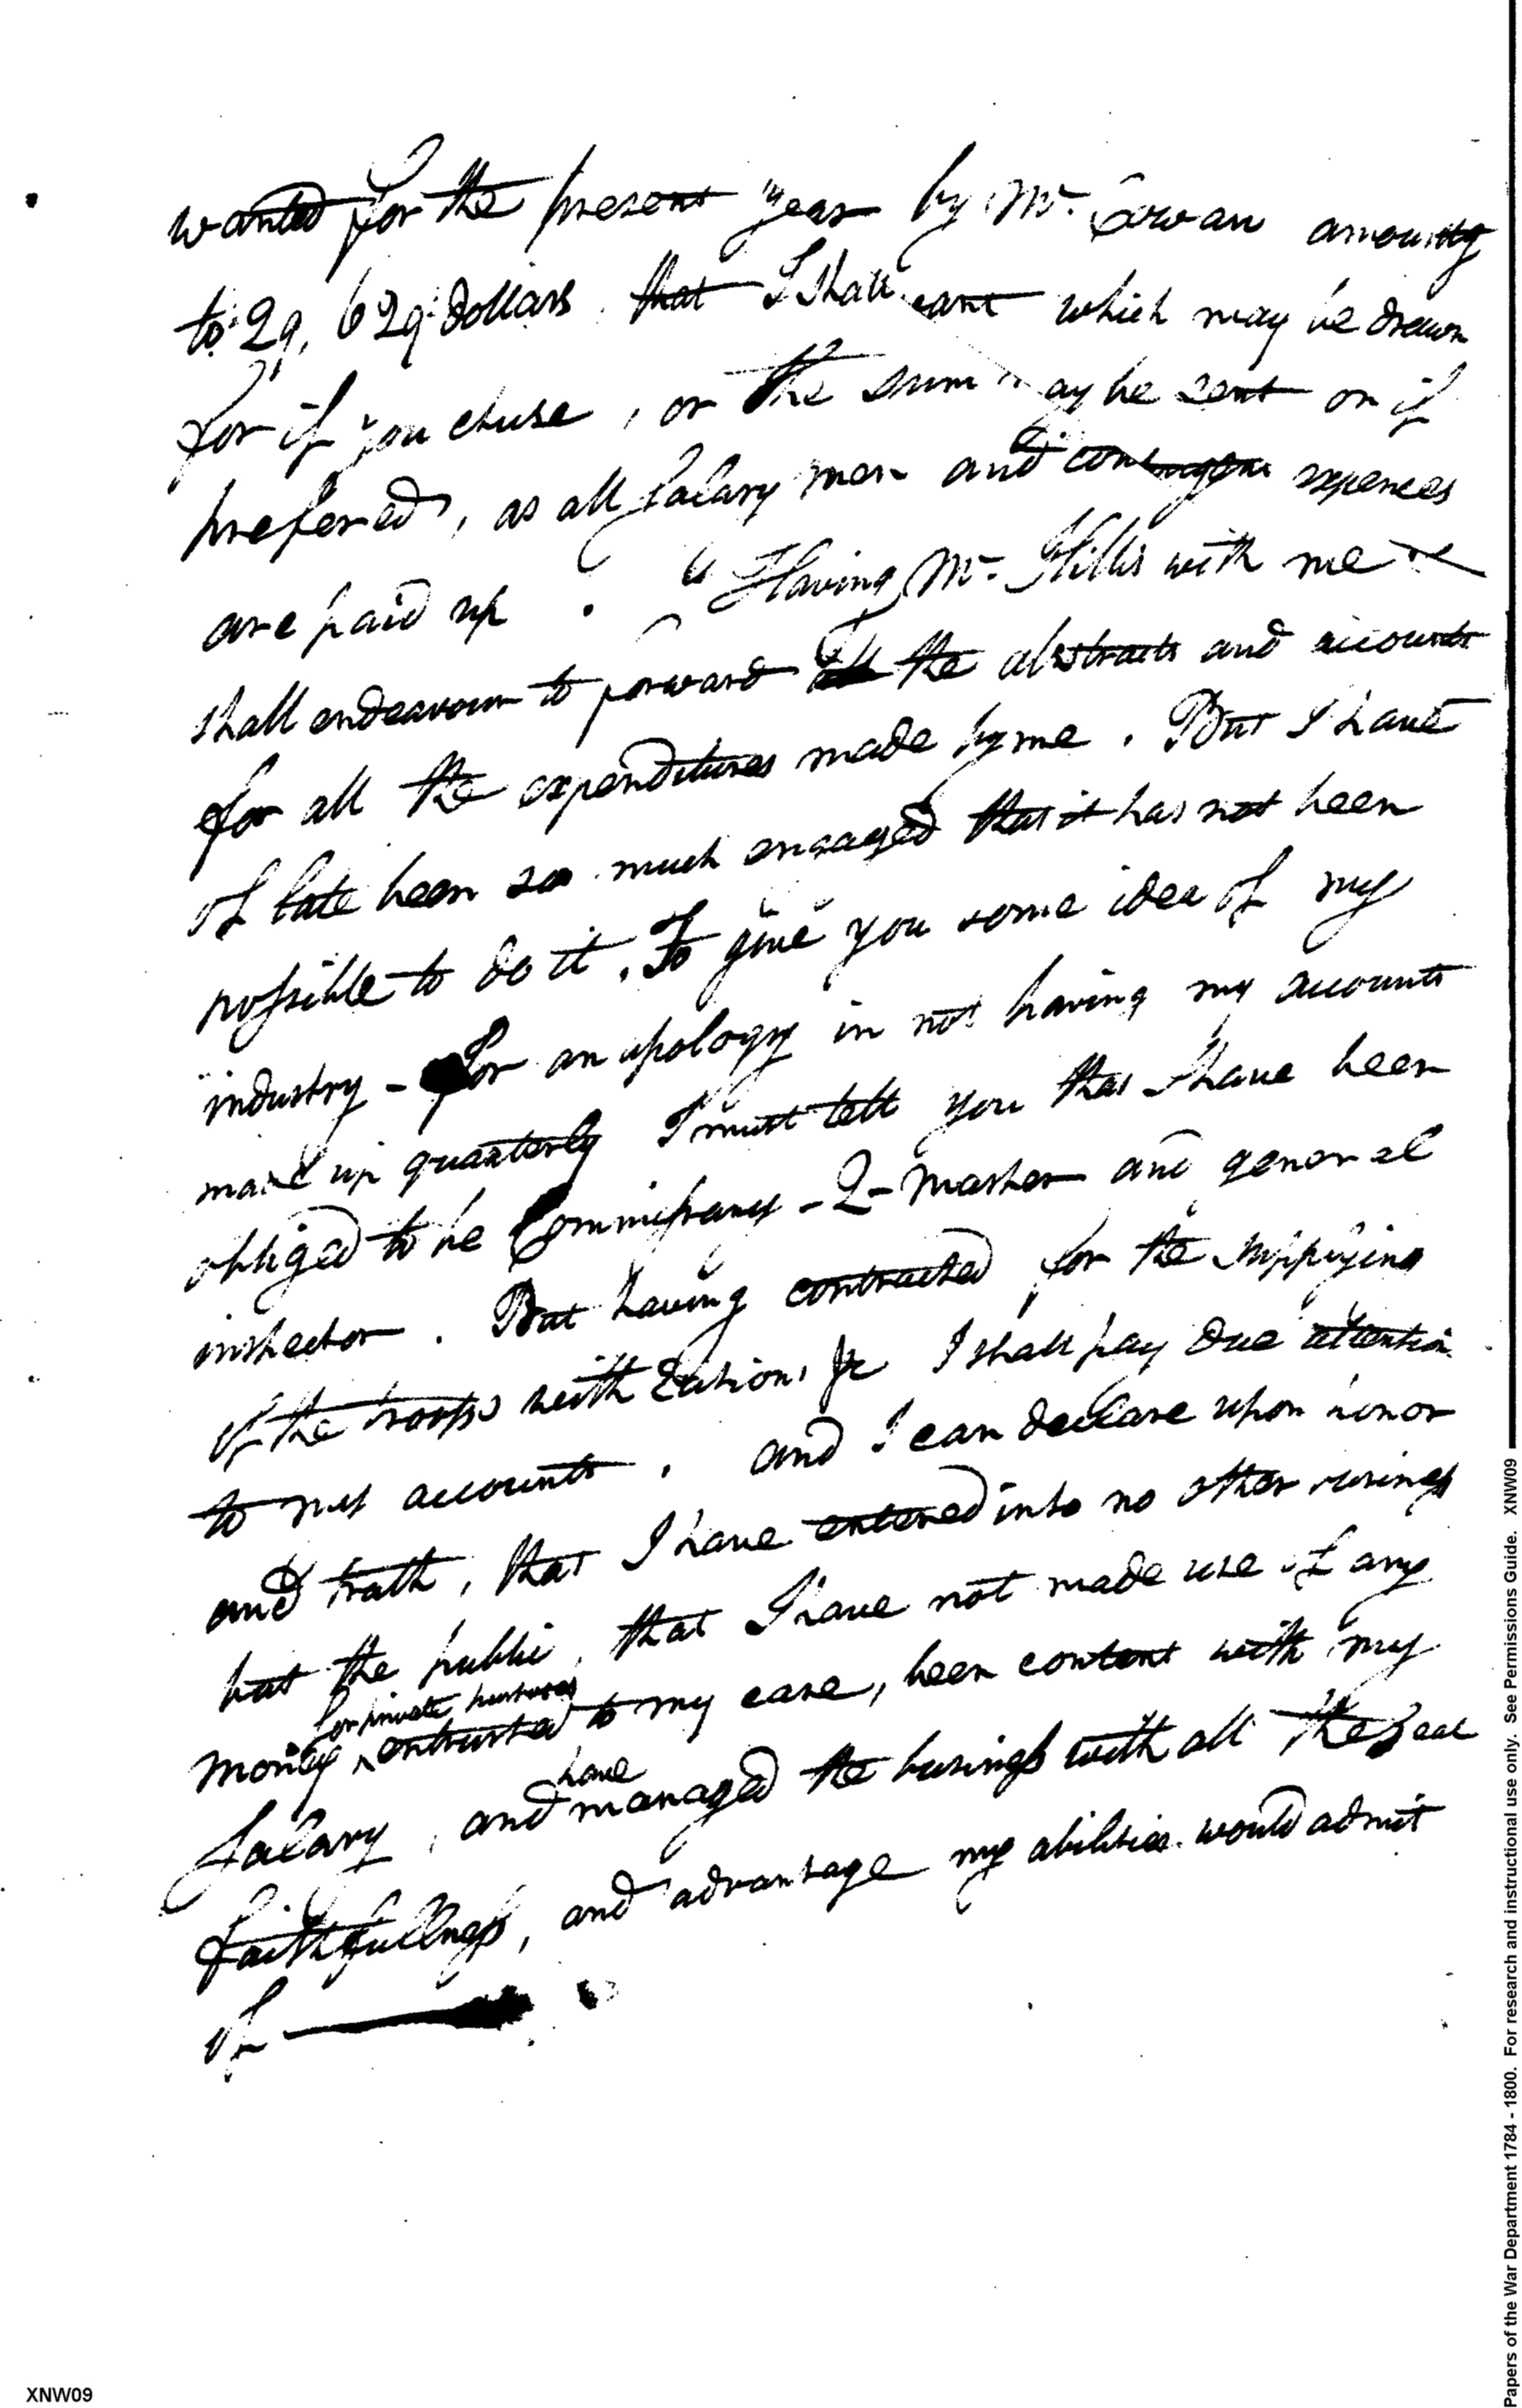 wanted for the present year by Mr. Cowan amountg
to 29,629 dollars that I shall want which may be drawn
for if you chuse, or the sum may be sent on if
prefered, as all Salary men and contingent expences
are paid up. Having Mr. Hillis with me
shall endeavour to forward all the abstracts and accounts
for all the expenditures made by me. But I have
of late been so much engaged that it has not been
possible to do it. To give you some idea of my
industry - for an apology in not having my accounts
made up quarterly I must tell you that I have been
obliged to be Commissary - Q - Master and general
inspector. But having contracted for the supplying
of the troops with Rations &c I shall pay due attention
to my accounts, and I can declare upon honor
and truth, that I have entered into no other business
but the public, that I have not made use of any
for private purposes
money ^ entrusted to my care, been content with my
have
Salary, and managed the business with all the zeal
faithfullness, and advantage my abilities would admit
of
XNW09
Papers of the War Department 1784 - 1800. For research and instructional use only. See Permissions Guide. XNW09